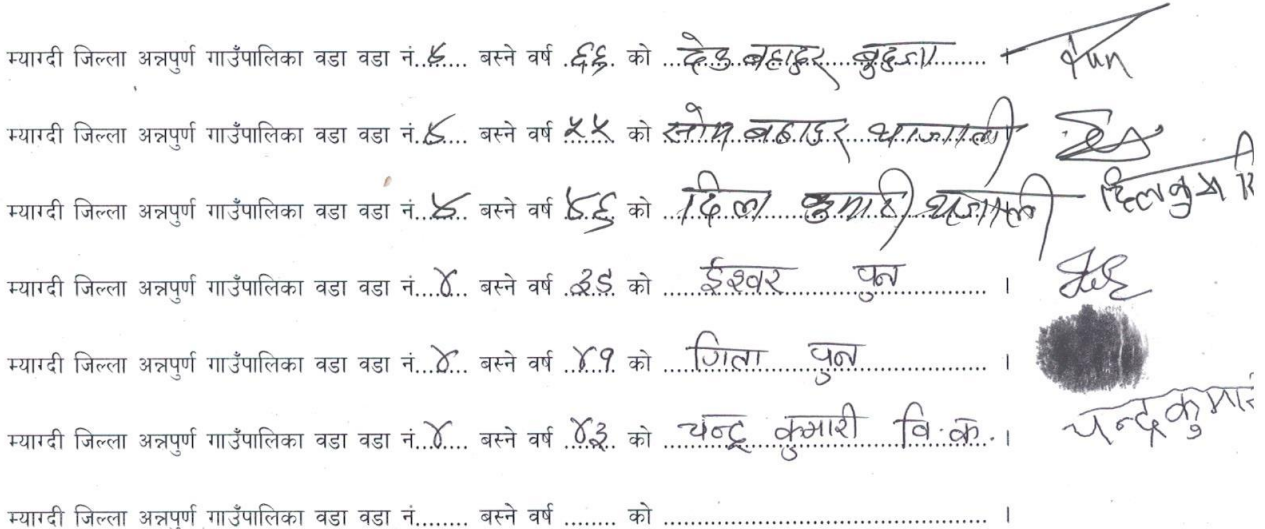 म्याग्दी जिल्ला अन्नपुर्ण गाउँपालिका वडा वडा नं..४.. बस्ने वर्ष .६६. को ...देउ बहादुर बुदुजा...... । Pun
म्याग्दी जिल्ला अन्नपुर्ण गाउँपालिका वडा वडा नं.४.... बस्ने वर्ष ५५ को सोम बहादुर थजाली
म्याग्दी जिल्ला अन्नपुर्ण गाउँपालिका वडा वडा नं..४.. बस्ने वर्ष ४६ को ..दिल कुमारी थजाली दिलकुमारी
म्याग्दी जिल्ला अन्नपुर्ण गाउँपालिका वडा वडा नं...४... बस्ने वर्ष .३८ को ......ईश्वर पुन............... ।
म्याग्दी जिल्ला अन्नपुर्ण गाउँपालिका वडा वडा नं...४... बस्ने वर्ष .४१. को ....गिता पुन................. ।
म्याग्दी जिल्ला अन्नपुर्ण गाउँपालिका वडा वडा नं...४... बस्ने वर्ष .४३. को ..चन्द्र कुमारी वि.क.. । चन्द्रकुमारी
म्याग्दी जिल्ला अन्नपुर्ण गाउँपालिका वडा वडा नं........ बस्ने वर्ष ........ को ................................................ ।